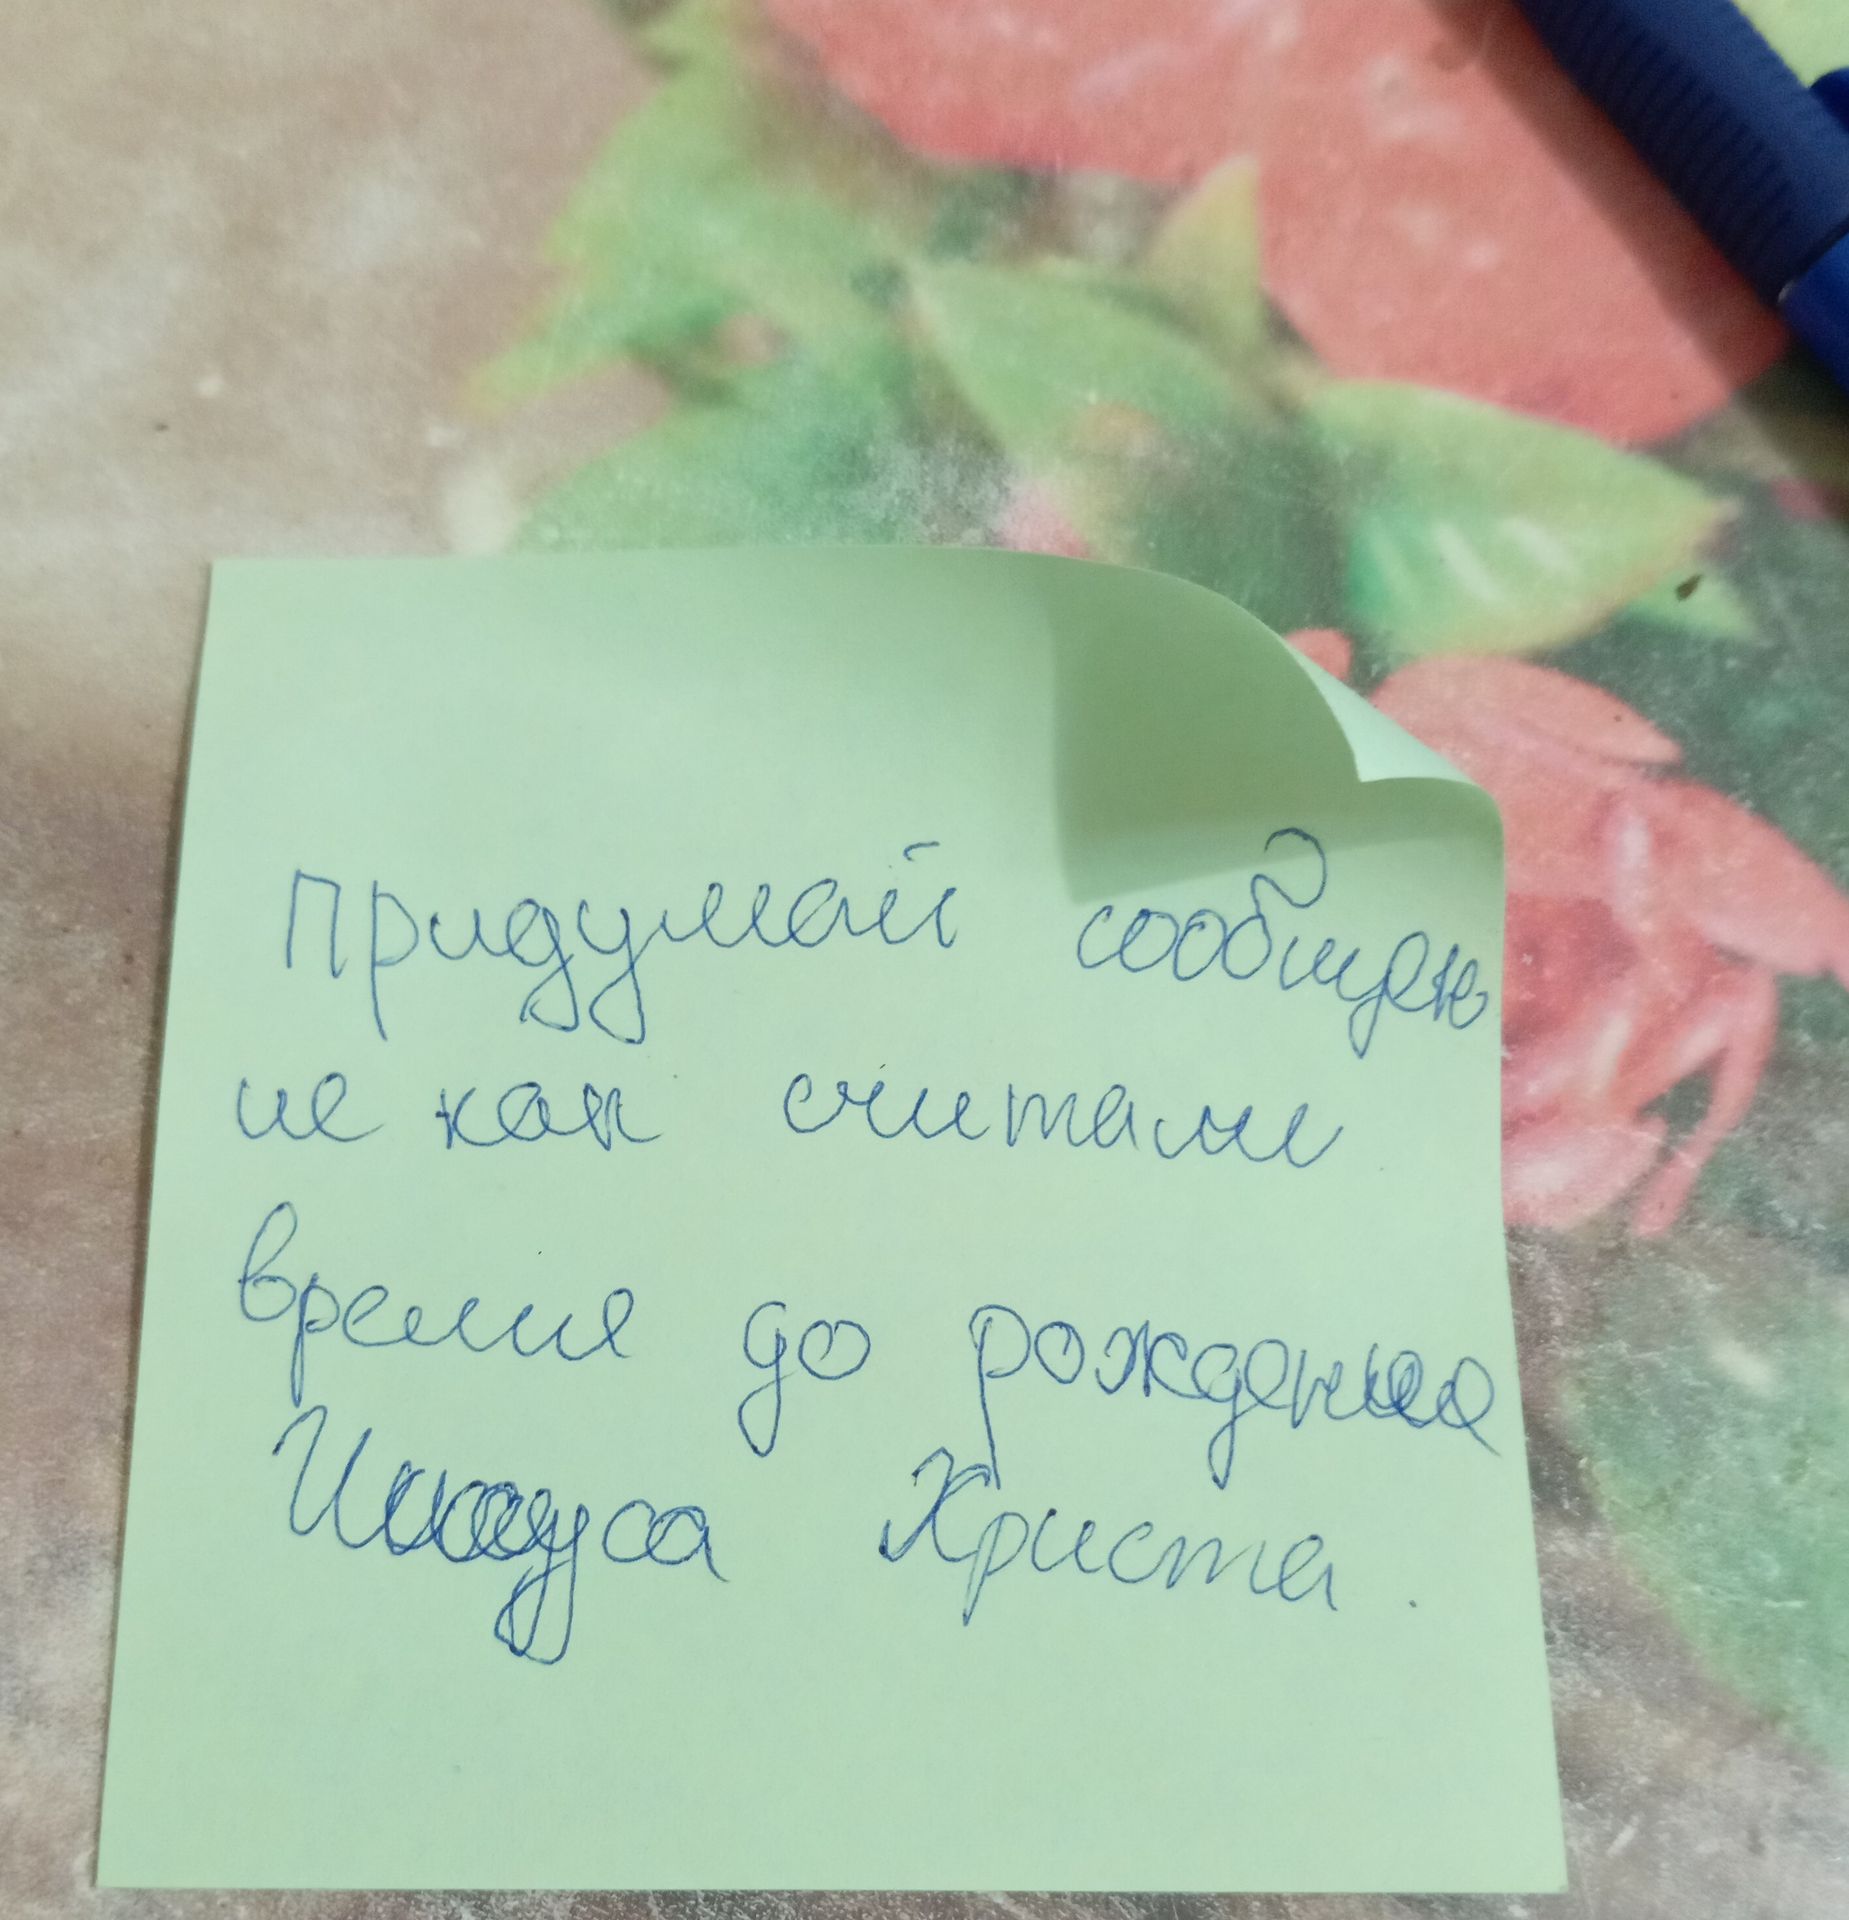 Придумай сообщен
ие как считали
время до рождения
Иисуса Христа.